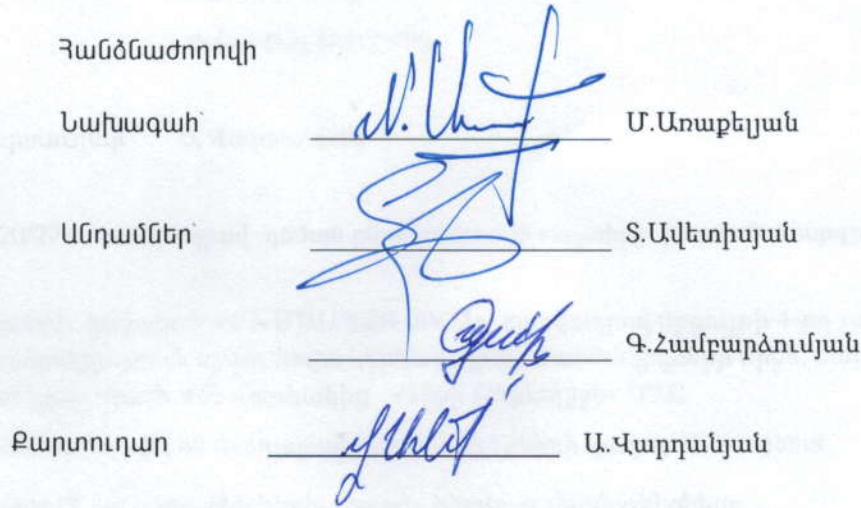 Հանձնաժողովի
Նախագահ Մ.Առաքելյան
Անդամներ՝ Տ.Ավետիսյան
Գ.Համբարձումյան
Քարտուղար Ա.Վարդանյան